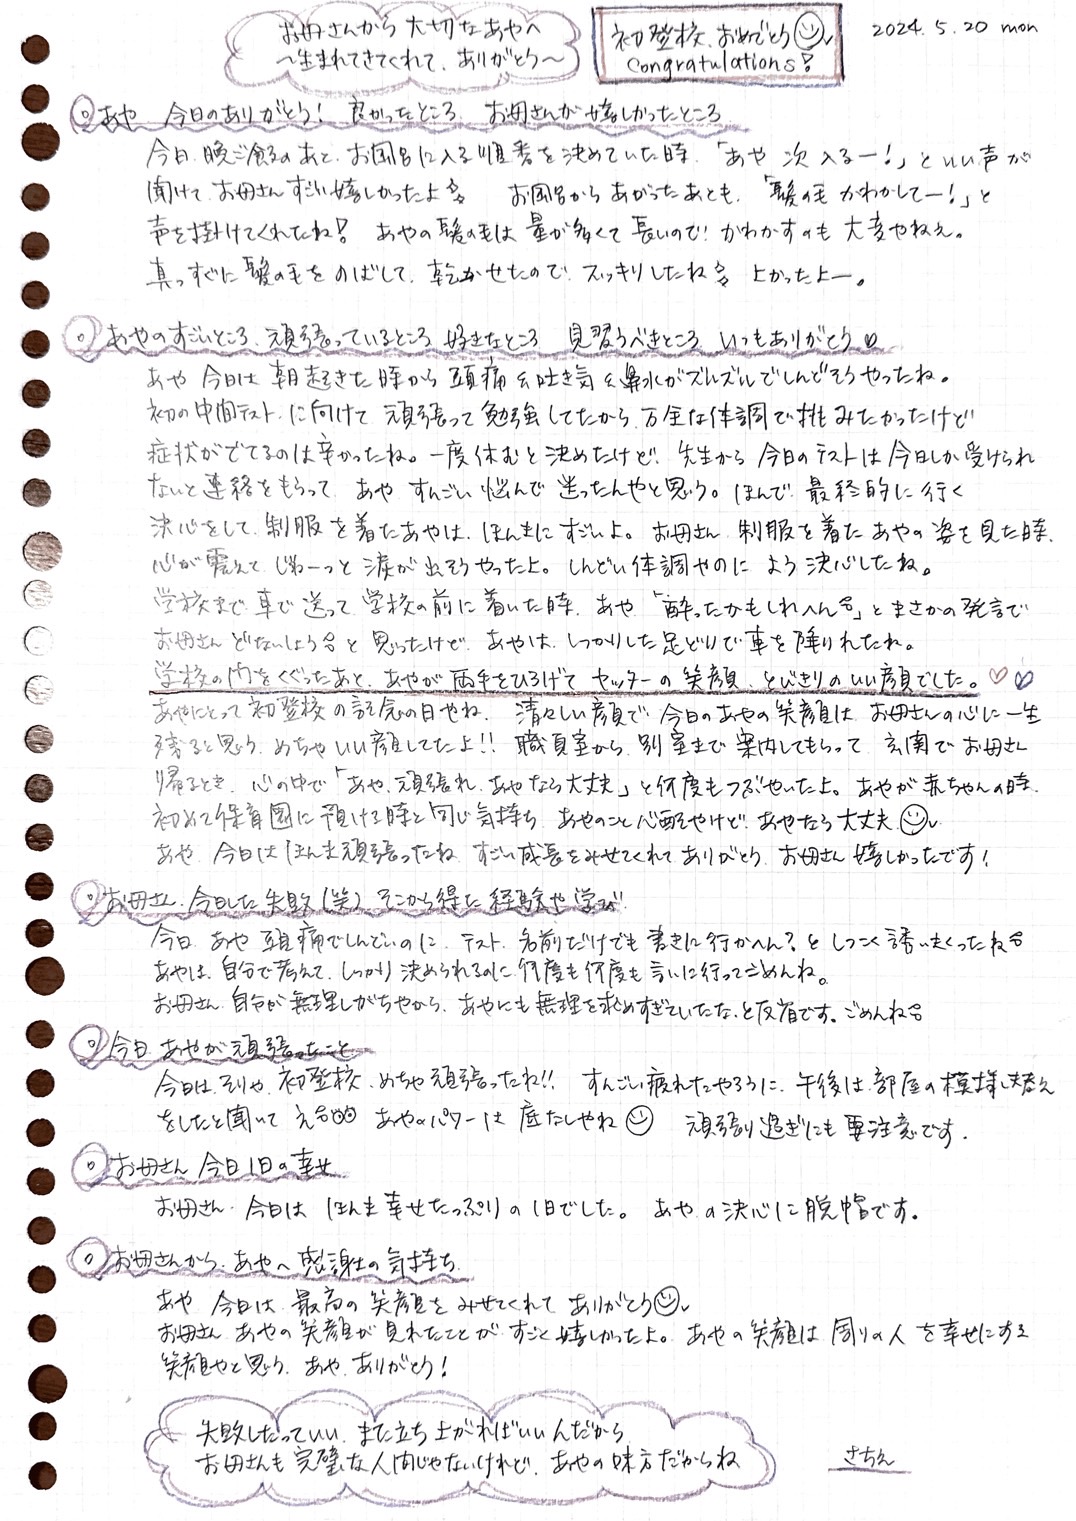 お母さんから 大切なあやへ
～生まれてきてくれて、ありがとう～
初登校、おめでとう
Congratulations!
2024. 5. 20 mon
あや 今日のありがとう! 良かったところ お母さんが嬉しかったところ
今日、晩ご飯のあと、お風呂に入る順番を決めていた時、「あや 次 入るー!」といい声が
聞けて、お母さん すごい嬉しかったよ お風呂からあがったあとも、「髪の毛 かわかしてー!」と
声を掛けてくれたね! あやの髪の毛は 量が多くて 長いので! かわかすのも 大変やねぇ。
真っすぐに 髪の毛を のばして、乾かせたので、スッキリしたね よかったよー。
あやのすごいところ、頑張っているところ 好きなところ 見習うべきところ いつもありがとう♡
あや 今日は 朝起きた時から 頭痛&吐き気&鼻水がズルズルでしんどそうやったね。
初の中間テスト に向けて 頑張って勉強してたから、万全な体調で挑みたかったけど
症状がでてるのは辛かったね。一度休むと決めたけど、先生から 今日のテストは今日しか受けられ
ないと連絡をもらって、あや すんごい悩んで 迷ったんやと思う。ほんで、最終的に行く
決心をして、制服を着たあやは、ほんまにすごいよ。お母さん、制服を着た あやの姿を見た時、
心が震えて じわーっと 涙が出そうやったよ。しんどい体調やのに よう決心したね。
学校まで 車で送って 学校の前に着いた時、あや「酔ったかもしれへん」とまさかの発言で
お母さん どないしよう と思ったけど、あやは、しっかりした足どりで車を降りれたね。
学校の門をくぐったあと、あやが 両手をひろげて ヤッターの笑顔、とびきりのいい顔でした。♡♡
あやにとって 初登校の記念の日やね、清々しい顔で 今日のあやの笑顔は お母さんの心に一生
残ると思う、めちゃいい顔してたよ!! 職員室から、別室まで 案内してもらって、玄関でお母さん
帰るとき、心の中で「あや、頑張れ、あやなら大丈夫」と何度もつぶやいたよ。あやが赤ちゃんの時、
初めて保育園に預ける時と同じ気持ち、あやのこと心配やけど、あやなら大丈夫
あや、今日は ほんま頑張ったね、すごい成長をみせてくれてありがとう、お母さん嬉しかったです!
お母さん、今日した失敗(笑) そこから得た経験や学び
今日、あや 頭痛でしんどいのに、テスト 名前だけでも書きに行かへん?としつこく誘いまくったね
あやは、自分で考えて、しっかり決められるのに、何度も何度も言いに行ってごめんね。
お母さん、自分が無理しがちやから、あやにも無理を求めすぎていたな、と反省です。ごめんね
今日、あやが頑張ったこと
今日は、そりゃ、初登校、めちゃ頑張ったね!! すんごい疲れたやろうに、午後は、部屋の模様替え
をしたと聞いて え あやのパワーは 底なしやね 頑張り過ぎにも要注意です。
お母さん 今日1日の幸せ
お母さん、今日は ほんま幸せたっぷりの1日でした。あやの決心に脱帽です。
お母さんから、あやへ 感謝の気持ち
あや 今日は、最高の笑顔をみせてくれて ありがとう
お母さん あやの笑顔が見れたことが すごく嬉しかったよ。あやの笑顔は 周りの人を幸せにする
笑顔やと思う、あや、ありがとう!
失敗したっていい、また立ち上がればいいんだから
お母さんも完璧な人間じゃないけれど、あやの味方だからね
さちえ